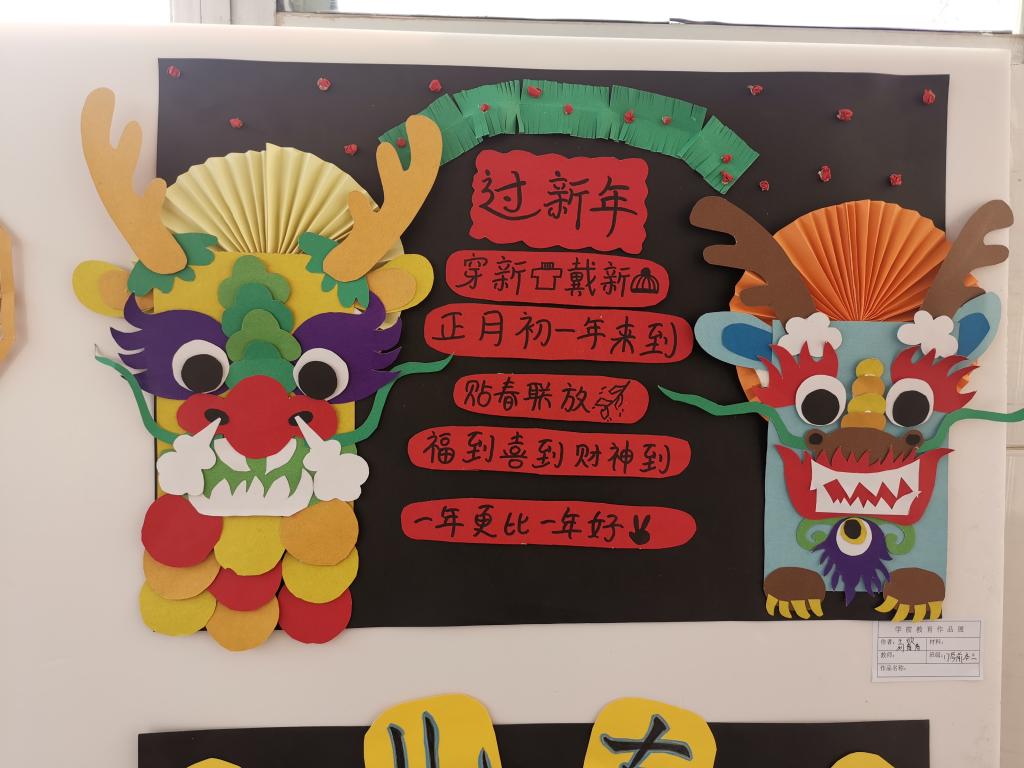 过新年
穿新戴新
正月初一年来到
贴春联放
福到喜到财神到
一年更比一年好
学前教育作品展
作者: 材料:
教师: 班级:
作品名称: